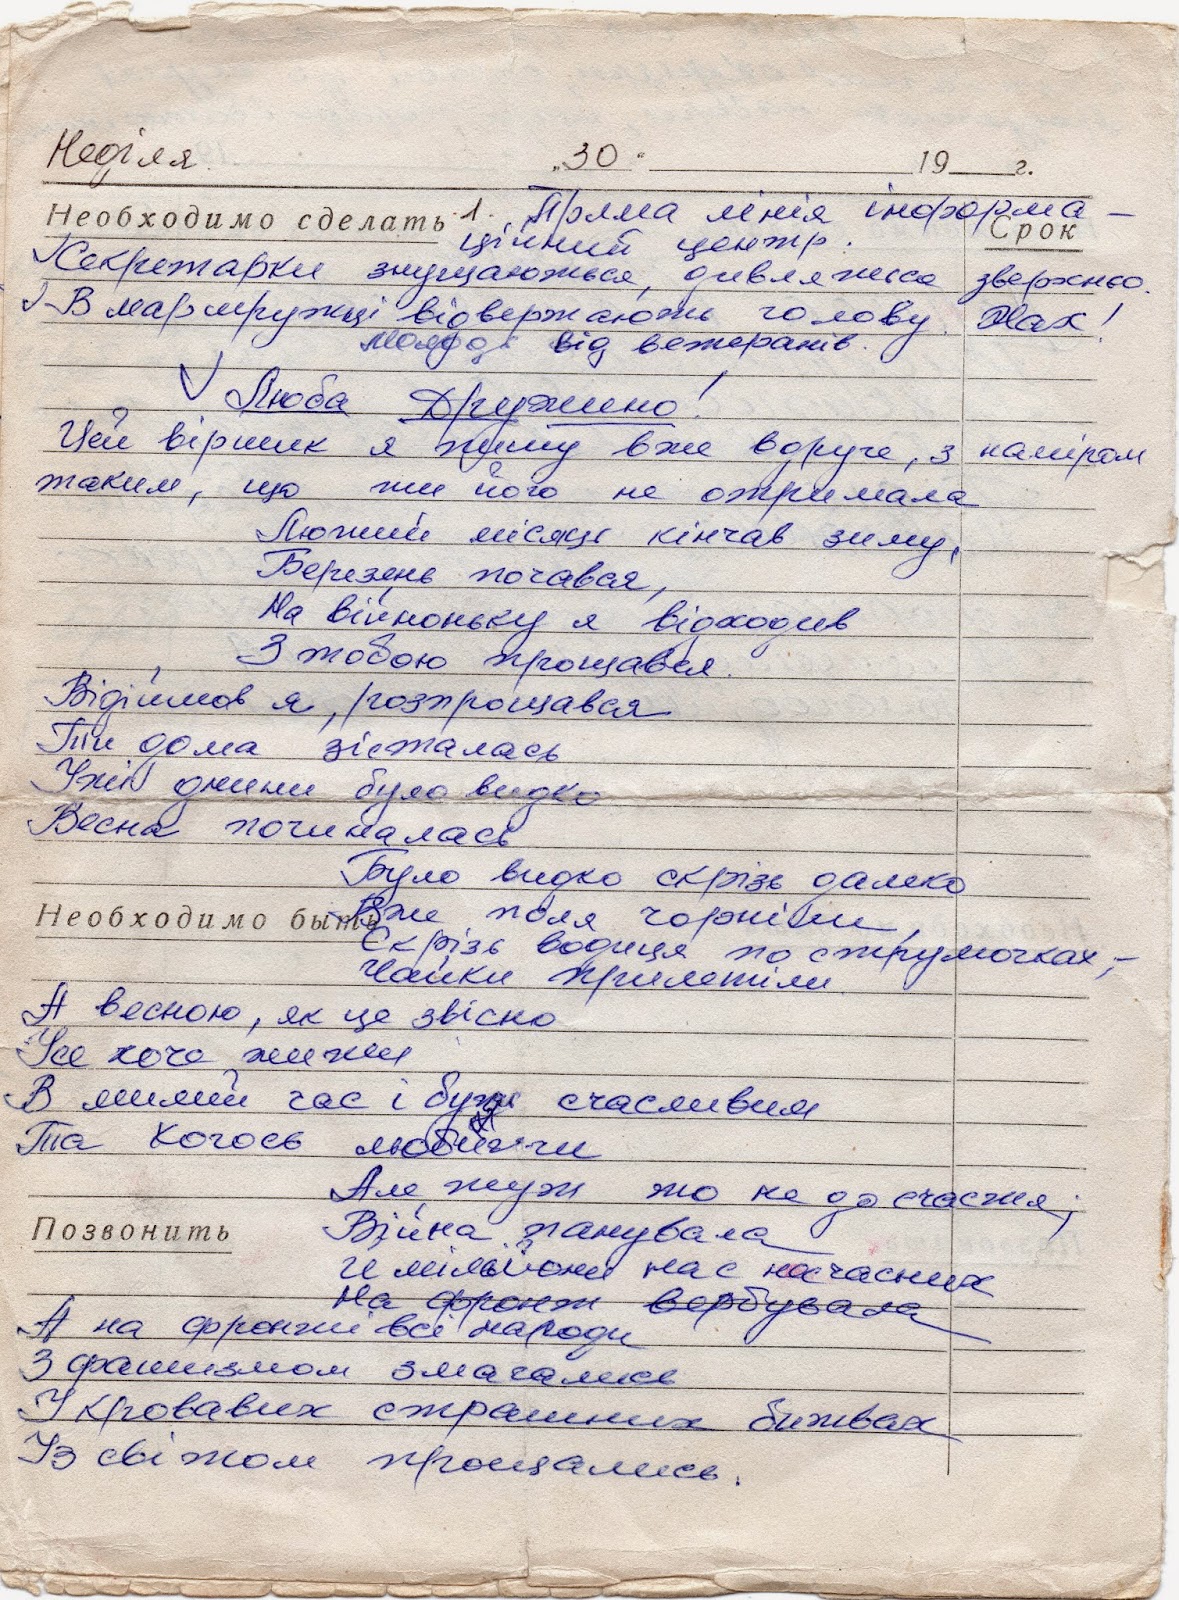 Неділя. „30“ 19 г.
Необходимо сделать 1. Пряма лінія інформа-
Срок
ційний центр.
Секретарки знущаються, дивляться зверхньо.
В маршружці відвертають голову. Жах!
молодь від ветеранів.
Люба Дружино!
Цей віршик я пишу вже вдруге, з наміром
таким, що ти його не отримала
Лютий місяць кінчав зиму,
Березень почався,
На війноньку я відходив
З тобою прощався.
Відійшов я, розпрощався
Ти дома зісталась
Ужік днини було видко
Весна починалась
Було видко скрізь далеко
Необходимо быть Вже поля чорніли,
Скрізь водиця по струмочках,-
Чайки прилетіли
А весною, як це звісно
Усе хоче жити
В милий час і бути счасливим
Та когось любити
Але тут то не до счастя;
Позвонить Війна панувала
И мільйони нас насчасних
На фронт вербувала
А на фронті всі народи
З фашизмом змагались
У кровавих страшних битвах
Із світом прощались.